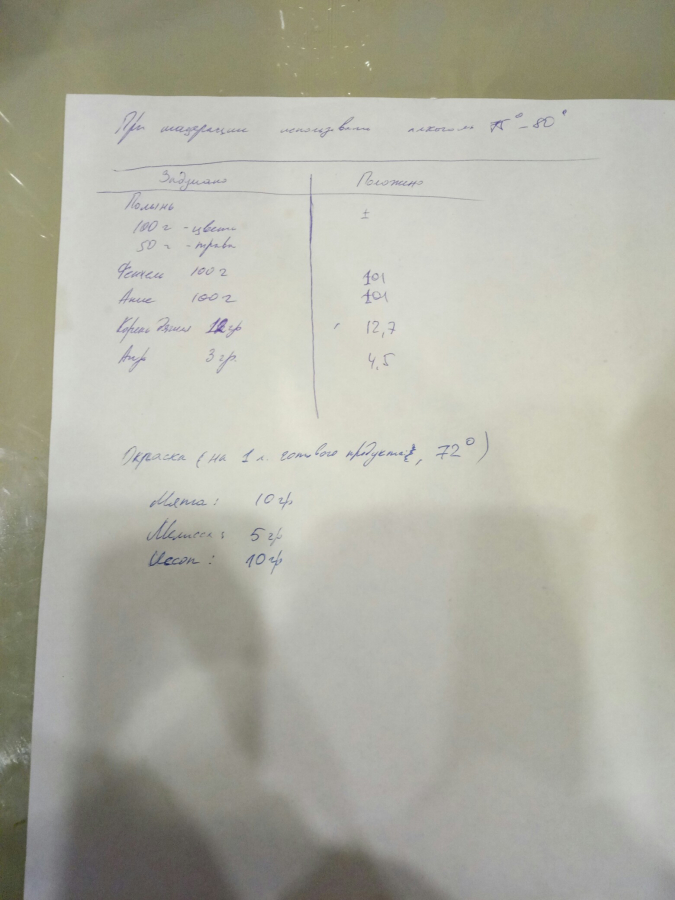 При мацерации использовать алкоголь 75° - 80°
Задумано Положено
Полынь ±
100 г - цветы
50 г - трава
Фенхель 100 г 101
Анис 100 г 101
Корень 12 гр 12,7
Аир 3 гр. 4,5
Окраска (на 1 л. готового продукта, 72°)
Мята: 10 гр
Мелисса: 5 гр
Иссоп: 10 гр